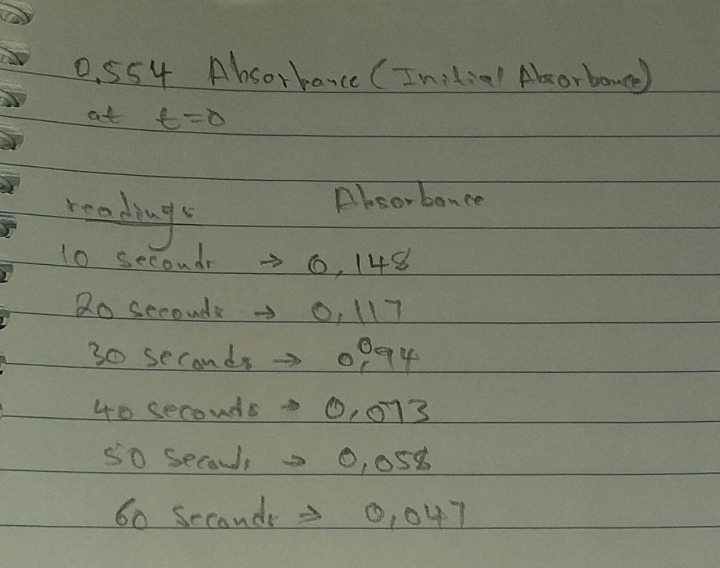 0.554 Absorbance (Initial Absorbance)
at t=0
readings Absorbance
10 seconds → 0,148
20 seconds → 0,117
30 seconds → 0,094
40 seconds → 0,073
50 seconds → 0,058
60 seconds → 0,047